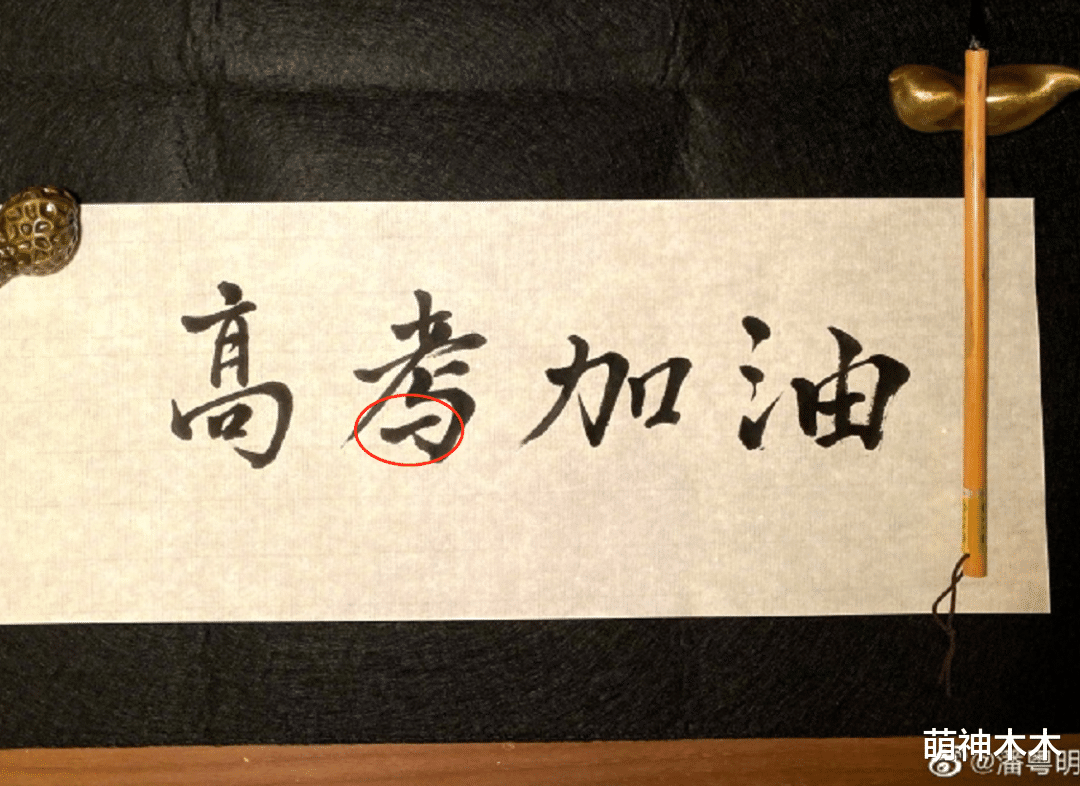 高考加油
萌神木木
@潘粤明